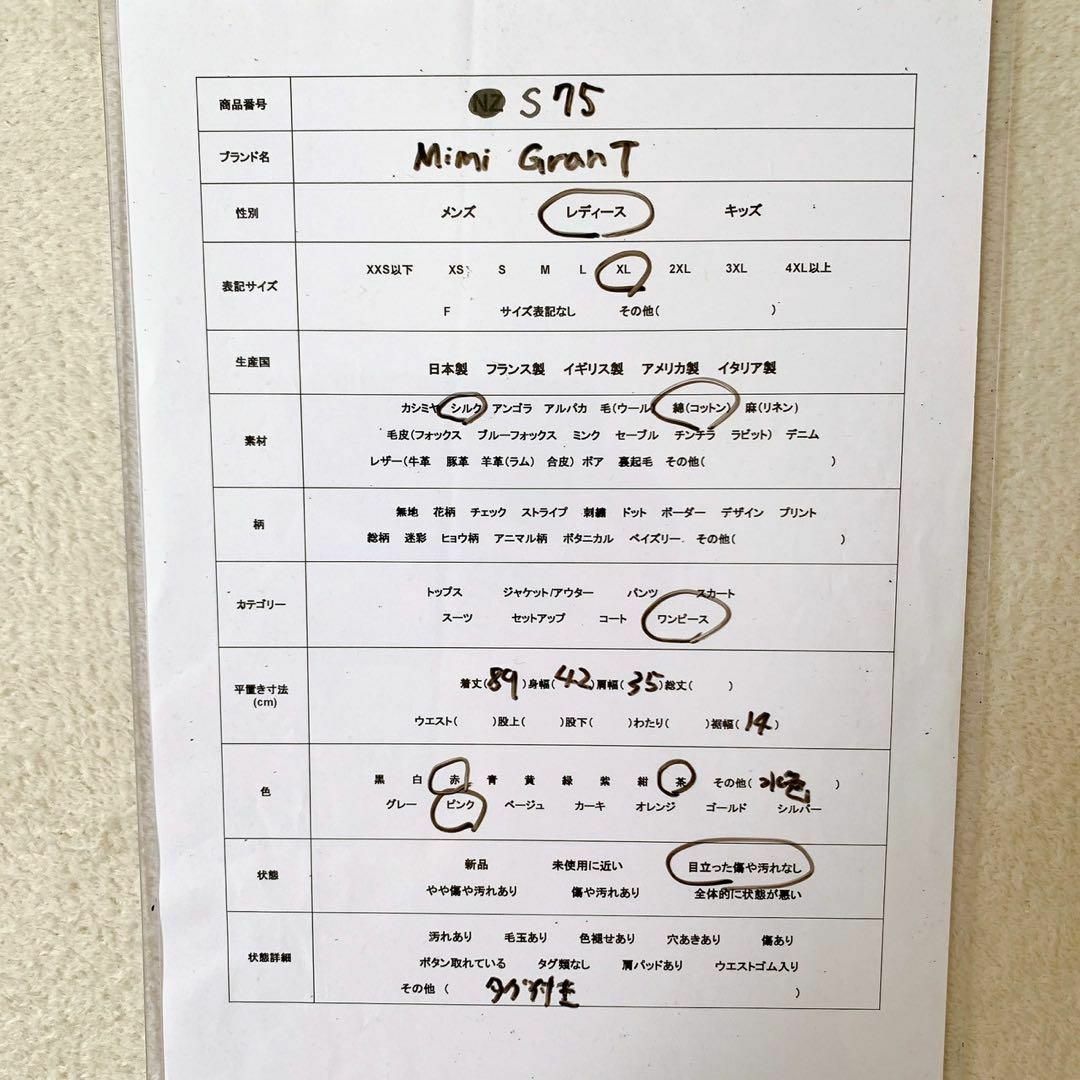 商品番号 NZ S 75
ブランド名 Mimi GranT
性別 メンズ レディース キッズ
表記サイズ XXS以下 XS S M L XL 2XL 3XL 4XL以上
F サイズ表記なし その他( )
生産国 日本製 フランス製 イギリス製 アメリカ製 イタリア製
素材 カシミヤ シルク アンゴラ アルパカ 毛(ウール) 綿(コットン) 麻(リネン)
毛皮(フォックス ブルーフォックス ミンク セーブル チンチラ ラビット) デニム
レザー(牛革 豚革 羊革(ラム) 合皮) ボア 裏起毛 その他( )
柄 無地 花柄 チェック ストライプ 刺繍 ドット ボーダー デザイン プリント
総柄 迷彩 ヒョウ柄 アニマル柄 ボタニカル ペイズリー その他( )
カテゴリー トップス ジャケット/アウター パンツ スカート
スーツ セットアップ コート ワンピース
平置き寸法 (cm) 着丈(89)身幅(42)肩幅(35)総丈( )
ウエスト( )股上( )股下( )わたり( )裾幅(14)
色 黒 白 赤 青 黄 緑 紫 紺 茶 その他(水色)
グレー ピンク ベージュ カーキ オレンジ ゴールド シルバー
状態 新品 未使用に近い 目立った傷や汚れなし
やや傷や汚れあり 傷や汚れあり 全体的に状態が悪い
状態詳細 汚れあり 毛玉あり 色褪せあり 穴あきあり 傷あり
ボタン取れている タグ類なし 肩パッドあり ウエストゴム入り
その他 ( タグ付き )